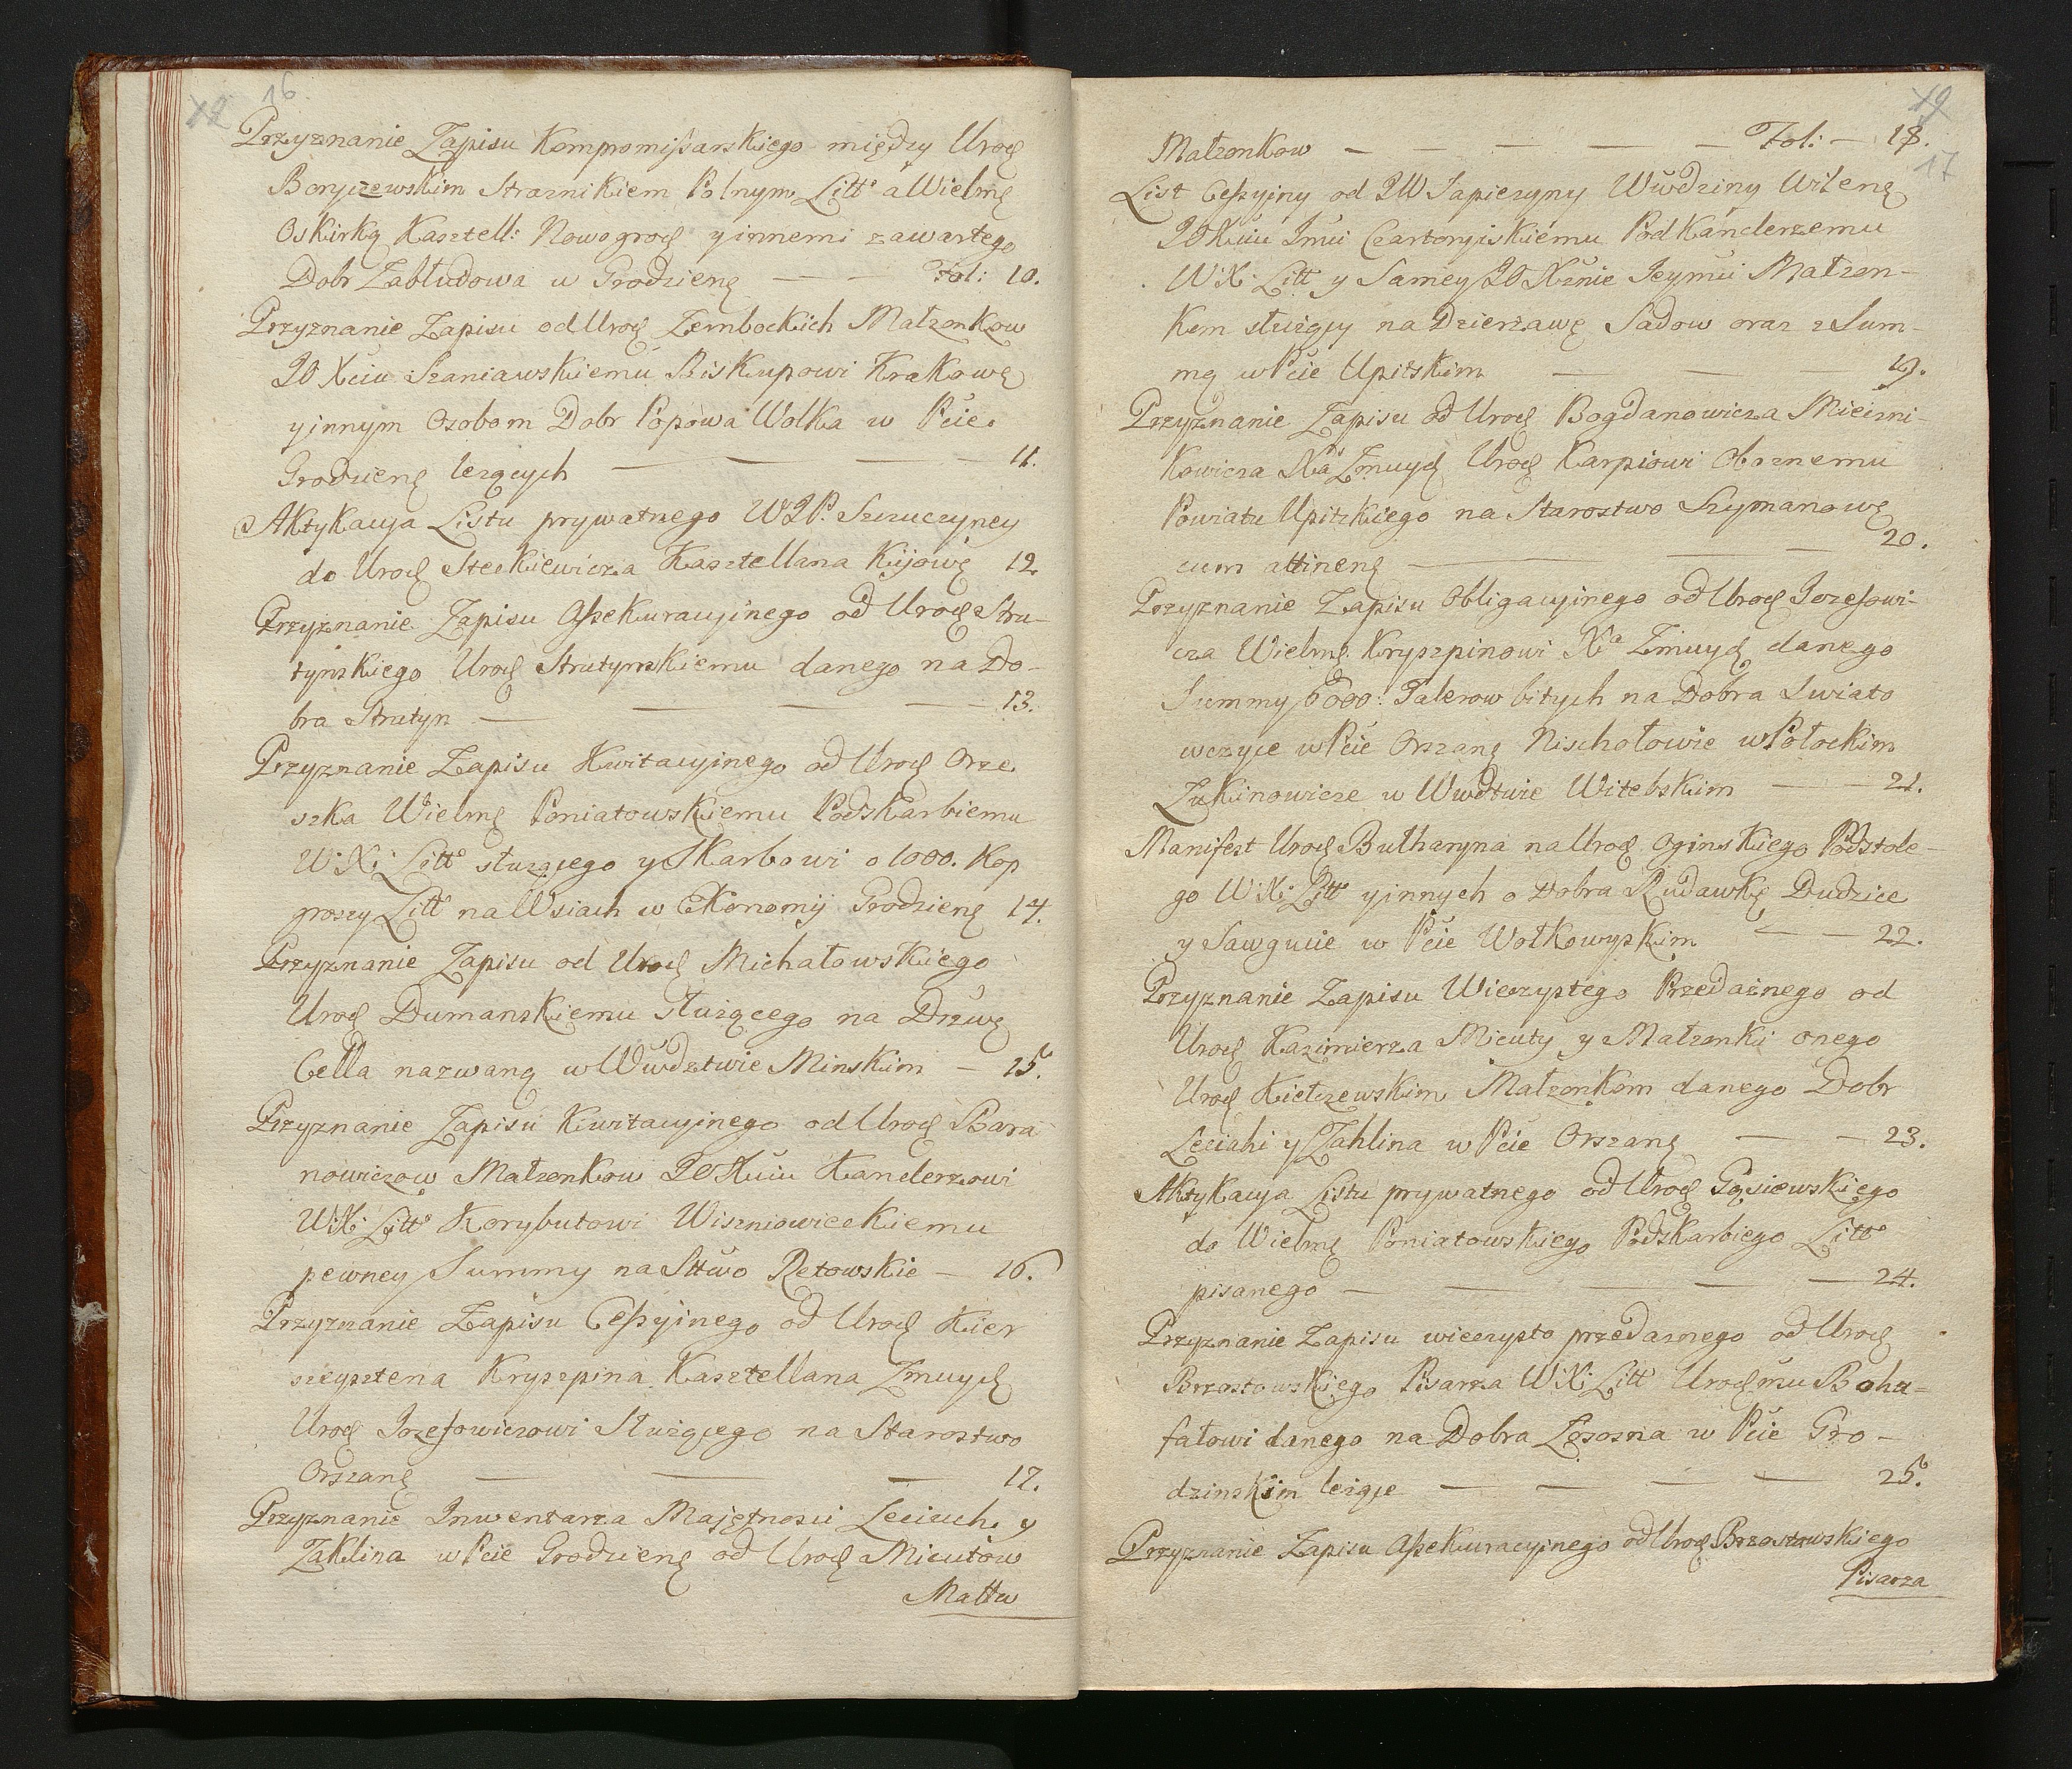 16
12
Przyznanie Zapisu Kompromissarskiego między Urod
Boryszewskim Straznikiem Polnym Litt a Wielm
Oskirką Kasztell: Nowogrod y innemi zawartego
Dobr Zabłudowa w Grodzien — — Fol: 10.
Przyznanie Zapisu od Urod Zembockich Małzonkow
JO Xciu Szaniawskiemu Biskupowi Krakows
y innym Osobom Dobr Popowa Wolka w Pcie
Grodzien lezących — — — — 11.
Aktykacya Listu prywatnego WJP. Szczuczyney
do Urod Steckiewicza Kasztellana Kijows 12.
Przyznanie Zapisu Assekuracyinego od Urod Stru-
tynskiego Urod Strutynskiemu danego na Do-
bra Strutyn — — — — 13.
Przyznanie Zapisu Kwitacyinego od Urod Orze
szka Wielm Poniatowskiemu Podskarbiemu
W: X: Litt słuzącego y Skarbowi o 1000. Kop
groszy Litt na Wsiach w Ekonomij Grodzien 14.
Przyznanie Zapisu od Urod Michałowskiego
Urod Dumanskiemu słuzącego na Dzwę
Cella nazwaną w Wwdztwie Minskim — 15.
Przyznanie Zapisu Kwitacyinego od Urod Bara
nowiczow Małzonkow JO Xciu Kanclerzowi
W: X: Litt Korybutowi Wiszniowieckiemu
pewney Summy na Sttwo Retowskie — 16.
Przyznanie Zapisu Cessyinego od Urod Kier
szeysztena Kryszpina Kasztellana Zmuyd
Urod Jozefowiczowi Służącego na Starostwo
Orszans — — — 17.
Przyznanie Inwentarza Majętnosci Leciach y
Zaklina w Pcie Grodzien od Urod Micutow
Małtw
12
17
Małzonkow — — — — — Fol: — 18.
List Cessyiny od JW Sapiezyny Wwdziny Wilens
JO Xciu Jmci Czartoryiskiemu Podkanclerzemu
W: X: Litt y Samey JO Xznie Jeymci Małzon-
kom słuzący na Dzierżawę Sadow oraz z Sum-
mą w Pcie Upitskim — — — 19.
Przyznanie Zapisu od Urod Bogdanowicza Mierni-
kowicza Xa Zmuyd Urod Karpiowi Oboznemu
Powiatu Upitskiego na Starostwo Szymanows
cum attinen — — — 20.
Przyznanie Zapisu Obligacyinego od Urod Jozefowi-
cza Wielm Kryszpinowi Xa Zmuyd danego
Summy 6000: Talerow bitych na Dobra Swiato
wczyce w Pcie Orszans Nischołowie w Połockim
Zukinowicze w Wwdztwie Witebskim — — 21.
Manifest Urod Bulharyna na Urod Oginskiego Podstole-
go W: X: Litt y innych o Dobra Rudawkę Dudzice
y Sawgucie w Pcie Wołkowyskim — — 22.
Przyznanie Zapisu Wieczystego Przedażnego od
Urod Kazimierza Micuty y Małzonki onego
Urod Kiełczewskim Małzonkom danego Dobr
Leciahi y Zahlina w Pcie Orszans — — 23.
Aktykacya Listu prywatnego od Urod Gąsiewskiego
do Wielm Poniatowskiego Podskarbiego Litt
pisanego — — — — 24.
Przyznanie Zapisu wieczysto przedaznego od Urod
Brzostowskiego Pisarza W: X: Litt Urodmu Boha=
fałowi danego na Dobra Łosośna w Pcie Gro-
dzinskim leżące — — — — 25.
Przyznanie Zapisu Assekuracyinego od Urod Brzostowskiego
Pisarza